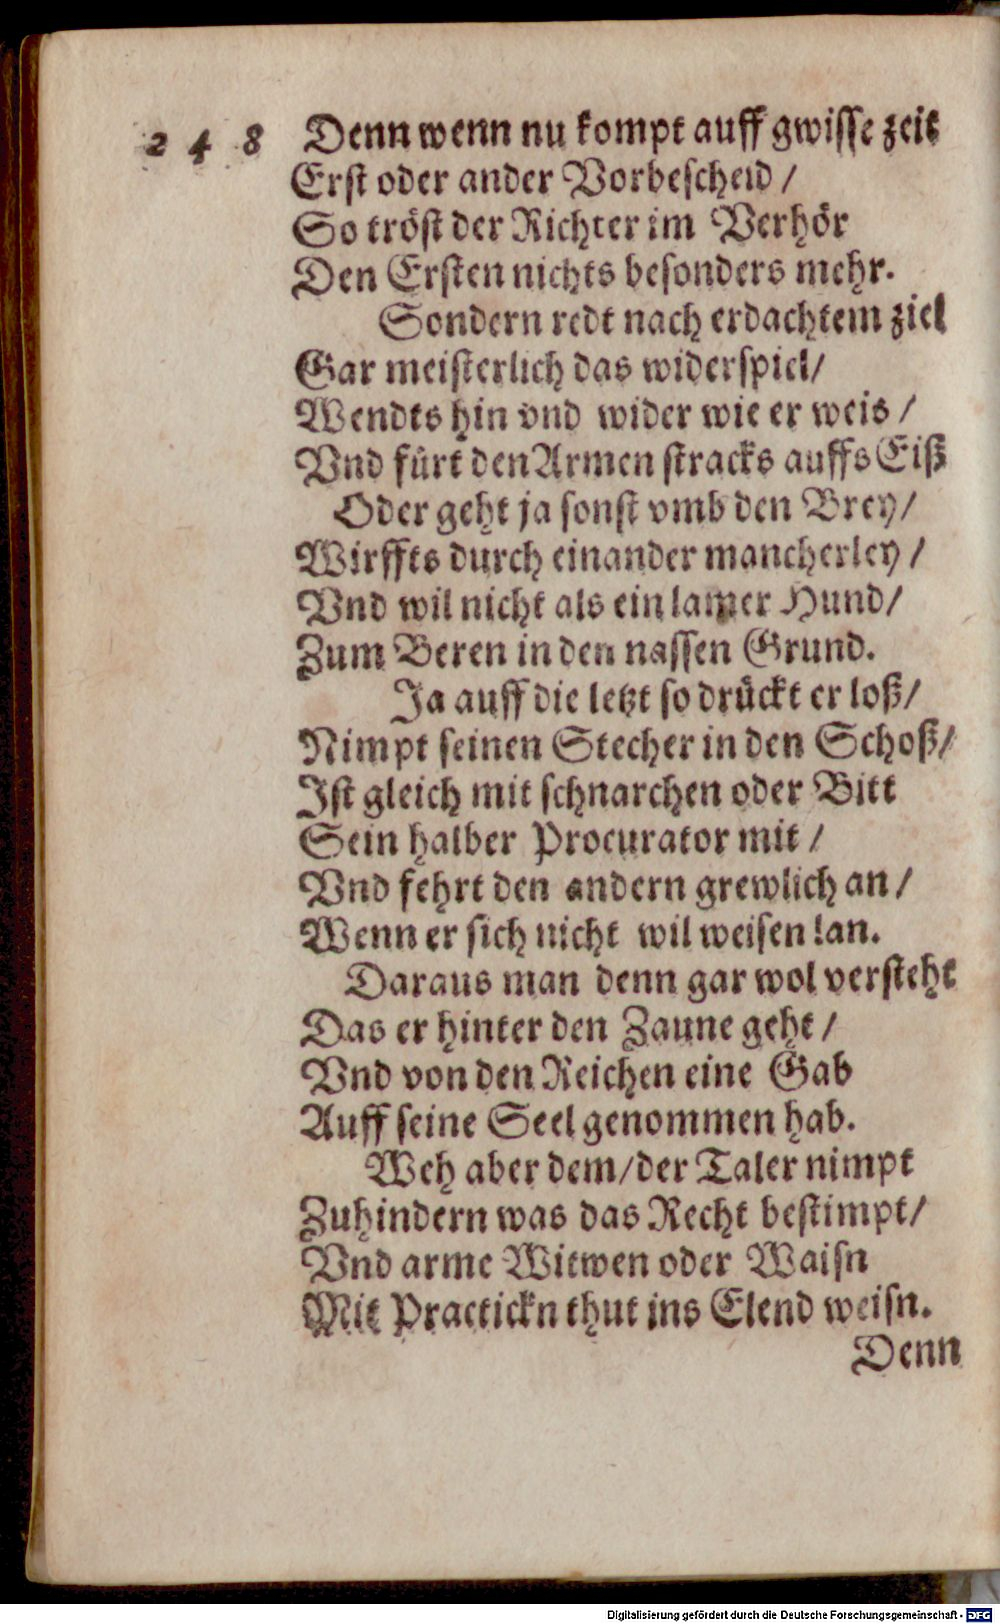 248 Denn wenn nu kompt auff gwisse zeit
Erst oder ander Vorbescheid /
So tröst der Richter im Verhör
Den Ersten nichts besonders mehr.
Sondern redt nach erdachtem ziel
Gar meisterlich das widerspiel/
Wendts hin vnd wider wie er weis /
Vnd fürt den Armen stracks auffs Eiß
Oder geht ja sonst vmb den Brey/
Wirffts durch einander mancherley /
Vnd wil nicht als ein lamer Hund/
Zum Beren in den nassen Grund.
Ja auff die letzt so drückt er loß/
Nimpt seinen Stecher in den Schoß/
Ist gleich mit schnarchen oder Bitt
Sein halber Procurator mit /
Vnd fehrt den andern grewlich an /
Wenn er sich nicht wil weisen lan.
Daraus man denn gar wol versteht
Das er hinter den Zaune geht /
Vnd von den Reichen eine Gab
Auff seine Seel genommen hab.
Weh aber dem/der Taler nimpt
Zuhindern was das Recht bestimpt/
Vnd arme Witwen oder Waisn
Mit Practickn thut ins Elend weisn.
Denn
Digitalisierung gefördert durch die Deutsche Forschungsgemeinschaft - DFG